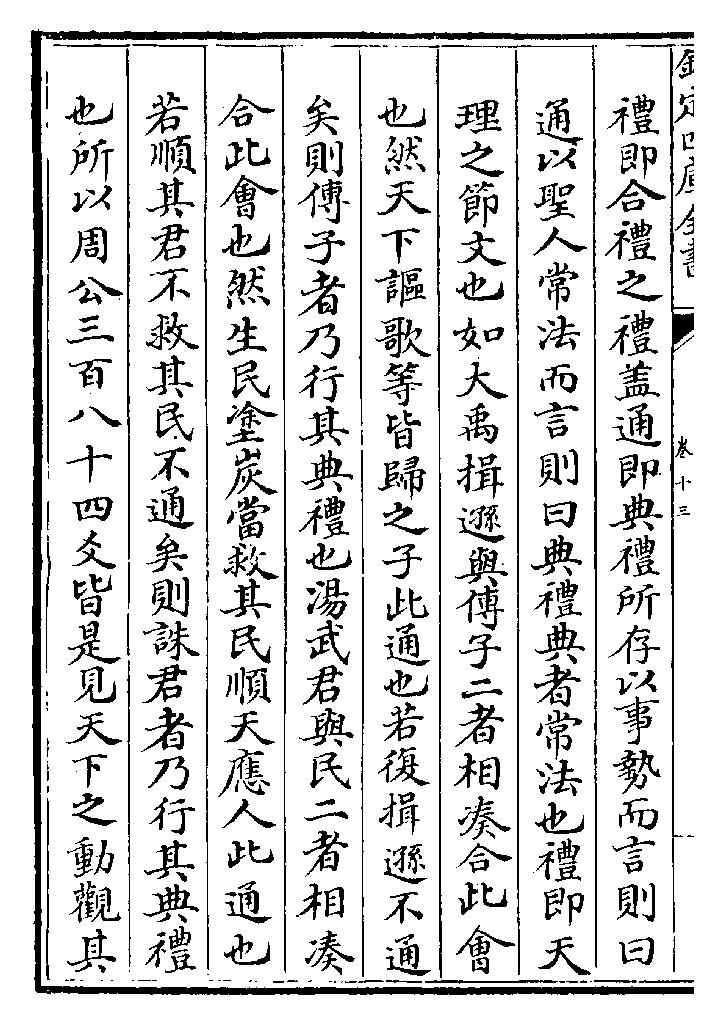 欽定四庫全書
卷十三
禮即合禮之禮蓋通即典禮所存以事勢而言則曰
通以聖人常法而言則曰典禮典者常法也禮即天
理之節文也如大禹揖遜與傳子二者相湊合此會
也然天下謳歌等皆歸之子此通也若復揖遜不通
矣則傳子者乃行其典禮也湯武君與民二者相湊
合此會也然生民塗炭當救其民順天應人此通也
若順其君不救其民不通矣則誅君者乃行其典禮
也所以周公三百八十四爻皆是見天下之動觀其